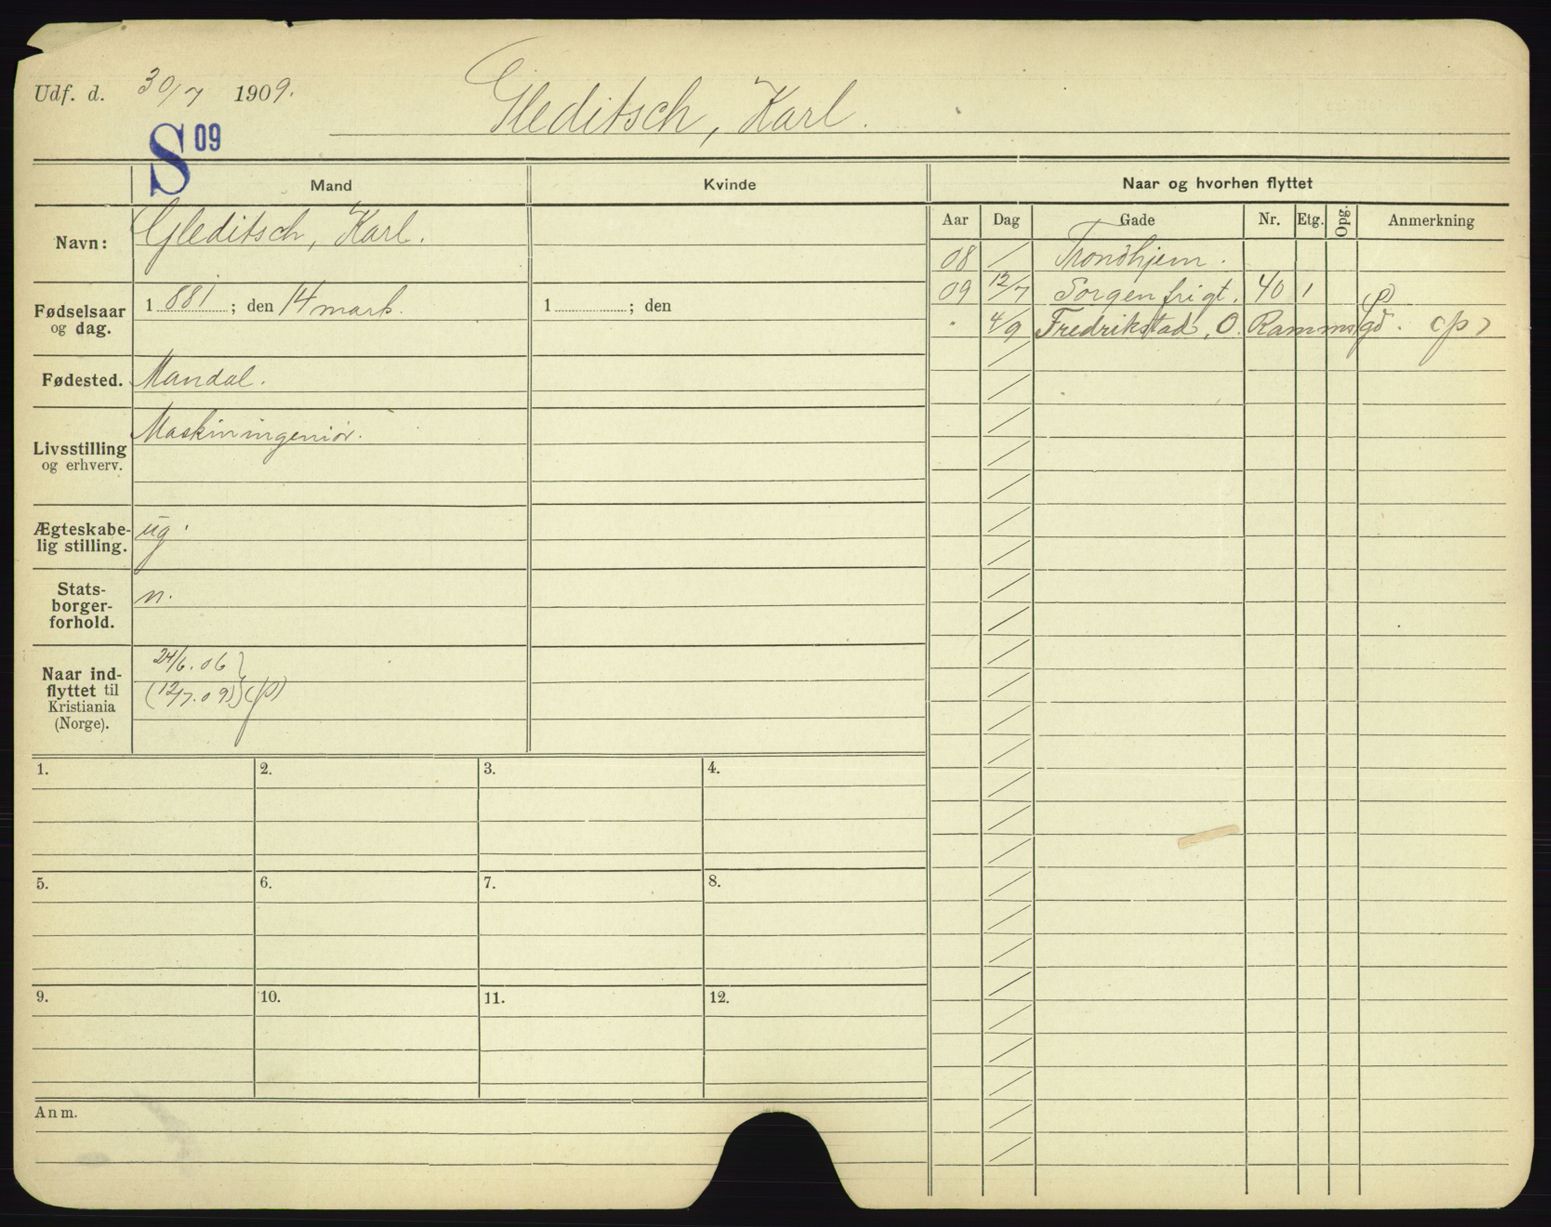 Udf. d. 30/7 1909.
Gleditsch, Karl.
S 09
Mand
Kvinde
Naar og hvorhen flyttet
Aar Dag Gade Nr. Etg. Opg. Anmerkning
Navn: Gleditsch, Karl.
Fødselsaar og dag. 1881; den 14 marts. 1 ; den
Fødested. Mandal.
Livsstilling og erhverv. Maskiningeniör.
Ægteskabe-
lig stilling. ug.
Stats-
borger-
forhold. n.
Naar ind-
flyttet til
Kristiania
(Norge).
24/6. 06
(12/7. 09) (p)
08 / Trondhjem.
09 12/7 Sorgenfrigt. 40 1 (p)
" 4/9 Fredrikstad, O. Ramms gd. (p)
1. 2. 3. 4.
5. 6. 7. 8.
9. 10. 11. 12.
Anm.